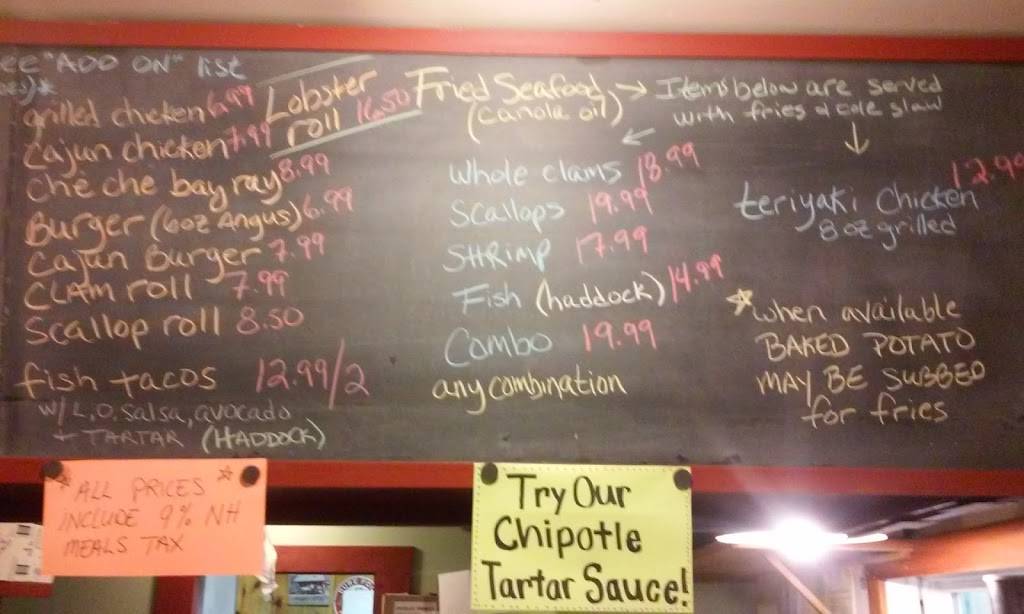 ee "ADD ON" list
grilled chicken 6.99
Cajun chicken 7.99
Che che bay ray 8.99
Burger (6oz Angus) 6.99
Cajun Burger 7.99
CLAM roll 7.99
Scallop roll 8.50
fish tacos 12.99/2
w/ L,O, salsa, avocado
+ TARTAR (HADDOCK)
Lobster
roll 16.50
Fried Seafood
(canola oil)
Items below are served
with fries & cole slaw
Whole clams 18.99
Scallops 19.99
SHRimp 17.99
Fish (haddock) 14.99
Combo 19.99
any combination
12.99
teriyaki Chicken
8 oz grilled
*when available
BAKED POTATO
MAY BE SUBBED
for fries
*ALL PRICES*
INCLUDE 9% NH
MEALS TAX
Try Our
Chipotle
Tartar Sauce!